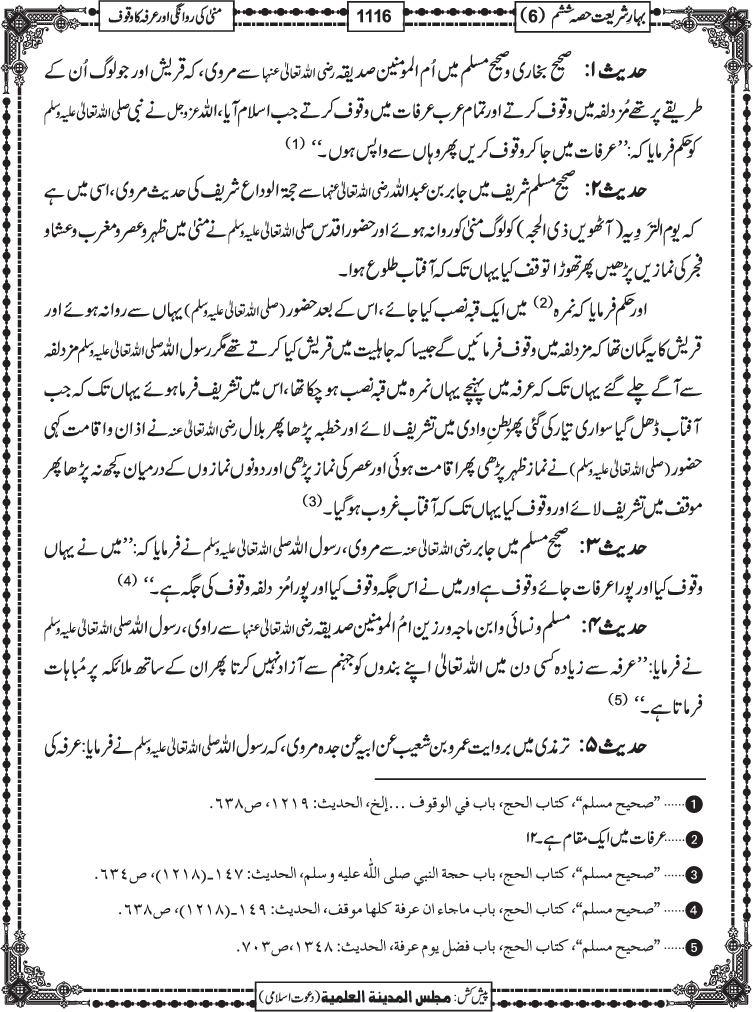 بہارِ شریعت حصہ ششم (6)
1116
منیٰ کی روانگی اور عرفہ کا وقوف
حدیث ۱: صحیح بخاری و صحیح مسلم میں اُم المومنین صدیقہ رضی اللہ تعالیٰ عنہا سے مروی، کہ قریش اور جو لوگ اُن کے
طریقے پر تھے مُزدلفہ میں وقوف کرتے اور تمام عرب عرفات میں وقوف کرتے جب اسلام آیا، اللہ عزوجل نے نبی صلی اللہ تعالیٰ علیہ وسلم
کو حکم فرمایا کہ: ’’عرفات میں جا کر وقوف کریں پھر وہاں سے واپس ہوں۔‘‘ (1)
حدیث ۲: صحیح مسلم شریف میں جابر بن عبداللہ رضی اللہ تعالیٰ عنہما سے حجۃ الوداع شریف کی حدیث مروی، اسی میں ہے
کہ یوم الترَوِیہ (آٹھویں ذی الحجہ) کو لوگ منیٰ کو روانہ ہوئے اور حضور اقدس صلی اللہ تعالیٰ علیہ وسلم نے منیٰ میں ظہر و عصر و مغرب و عشا و
فجر کی نمازیں پڑھیں پھر تھوڑا توقف کیا یہاں تک کہ آفتاب طلوع ہوا۔
اور حکم فرمایا کہ نمرہ (2) میں ایک قبہ نصب کیا جائے، اس کے بعد حضور (صلی اللہ تعالیٰ علیہ وسلم) یہاں سے روانہ ہوئے اور
قریش کا یہ گمان تھا کہ مزدلفہ میں وقوف فرمائیں گے جیسا کہ جاہلیت میں قریش کیا کرتے تھے مگر رسول اللہ صلی اللہ تعالیٰ علیہ وسلم مزدلفہ
سے آگے چلے گئے یہاں تک کہ عرفہ میں پہنچے یہاں نمرہ میں قبہ نصب ہو چکا تھا، اس میں تشریف فرما ہوئے یہاں تک کہ جب
آفتاب ڈھل گیا سواری تیار کی گئی پھر بطنِ وادی میں تشریف لائے اور خطبہ پڑھا پھر بلال رضی اللہ تعالیٰ عنہ نے اذان و اقامت کہی
حضور (صلی اللہ تعالیٰ علیہ وسلم) نے نماز ظہر پڑھی پھر اقامت ہوئی اور عصر کی نماز پڑھی اور دونوں نمازوں کے درمیان کچھ نہ پڑھا پھر
موقف میں تشریف لائے اور وقوف کیا یہاں تک کہ آفتاب غروب ہو گیا۔ (3)
حدیث ۳: صحیح مسلم میں جابر رضی اللہ تعالیٰ عنہ سے مروی، رسول اللہ صلی اللہ تعالیٰ علیہ وسلم نے فرمایا کہ: ’’میں نے یہاں
وقوف کیا اور پورا عرفات جائے وقوف ہے اور میں نے اس جگہ وقوف کیا اور پورا مُزدلفہ وقوف کی جگہ ہے۔‘‘ (4)
حدیث ۴: مسلم و نسائی و ابن ماجہ و رزین امُ المومنین صدیقہ رضی اللہ تعالیٰ عنہا سے راوی، رسول اللہ صلی اللہ تعالیٰ علیہ وسلم
نے فرمایا: ’’عرفہ سے زیادہ کسی دن میں اللہ تعالیٰ اپنے بندوں کو جہنم سے آزاد نہیں کرتا پھر ان کے ساتھ ملائکہ پر مُباہات
فرماتا ہے۔‘‘ (5)
حدیث ۵: ترمذی میں بروایت عمرو بن شعیب عن ابیہ عن جدہ مروی، کہ رسول اللہ صلی اللہ تعالیٰ علیہ وسلم نے فرمایا: عرفہ کی
1 ...... ”صحيح مسلم“، كتاب الحج، باب في الوقوف ...إلخ، الحديث: ١٢١٩، ص٦٣٨.
2 ......عرفات میں ایک مقام ہے۔۱۲
3 ...... ”صحيح مسلم“، كتاب الحج، باب حجة النبي صلى الله عليه وسلم، الحديث: ١٤٧ـ(١٢١٨)، ص٦٣٤.
4 ...... ”صحيح مسلم“، كتاب الحج، باب ماجاء ان عرفة كلها موقف، الحديث: ١٤٩ـ(١٢١٨)، ص٦٣٨.
5 ...... ”صحيح مسلم“، كتاب الحج، باب فضل يوم عرفة، الحديث: ١٣٤٨،ص٧٠٣.
پیش کش: مجلس المدينة العلمية (دعوت اسلامی)